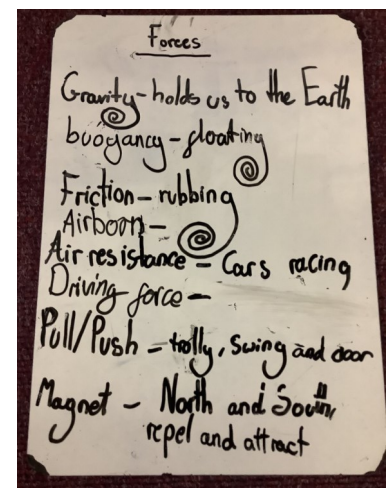 Forces
Gravity - holds us to the Earth
buoyancy - floating
Friction - rubbing
Airborn -
Air resistance - Cars racing
Driving force -
Pull/Push - trolly, swing and door
Magnet - North and South,
repel and attract